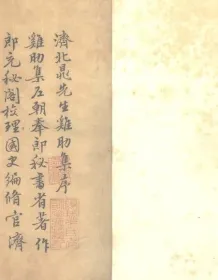 濟北晁先生雞肋集序
雞肋集左朝奉郎秘書省著作
郎充秘閣校理國史編脩官濟